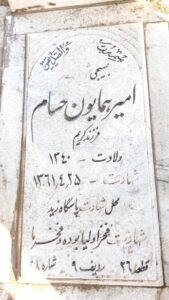 شهید
بسیجی
امیر همایون حسام
فرزند کریم
ولادت - ۱۳۴۰
شهادت - ۱۳۶۱,۴,۲۵
محل شهادت پاسگاه زید
شهادت فخر اولیا بوده و فخر ما
قطعه ۲۶ ردیف ۹ شماره ۸